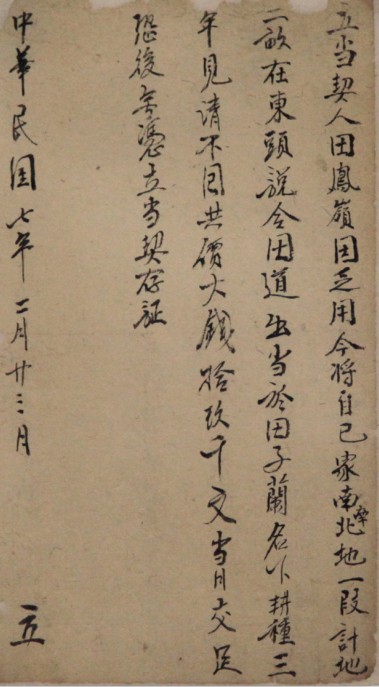 立当契人田鳳嶺因乏用今将自己家南北牽地一段計地
二畝在東頭說合田道出当於田子蘭名下耕種三
年見清不回共價大錢拾玖千文当日交足
恐後無憑立当契存証
中華民国七年二月廿三日 立